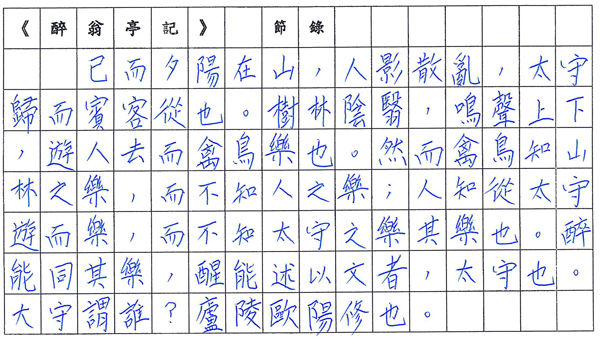 《醉翁亭記》 節錄
已而夕陽在山，人影散亂，太守
歸而賓客從也。樹林陰翳，鳴聲上下
，遊人去而禽鳥樂也。然而禽鳥知山
林之樂，而不知人之樂；人知從太守
遊而樂，而不知太守之樂其樂也。醉
能同其樂，醒能述以文者，太守也。
太守謂誰？廬陵歐陽修也。